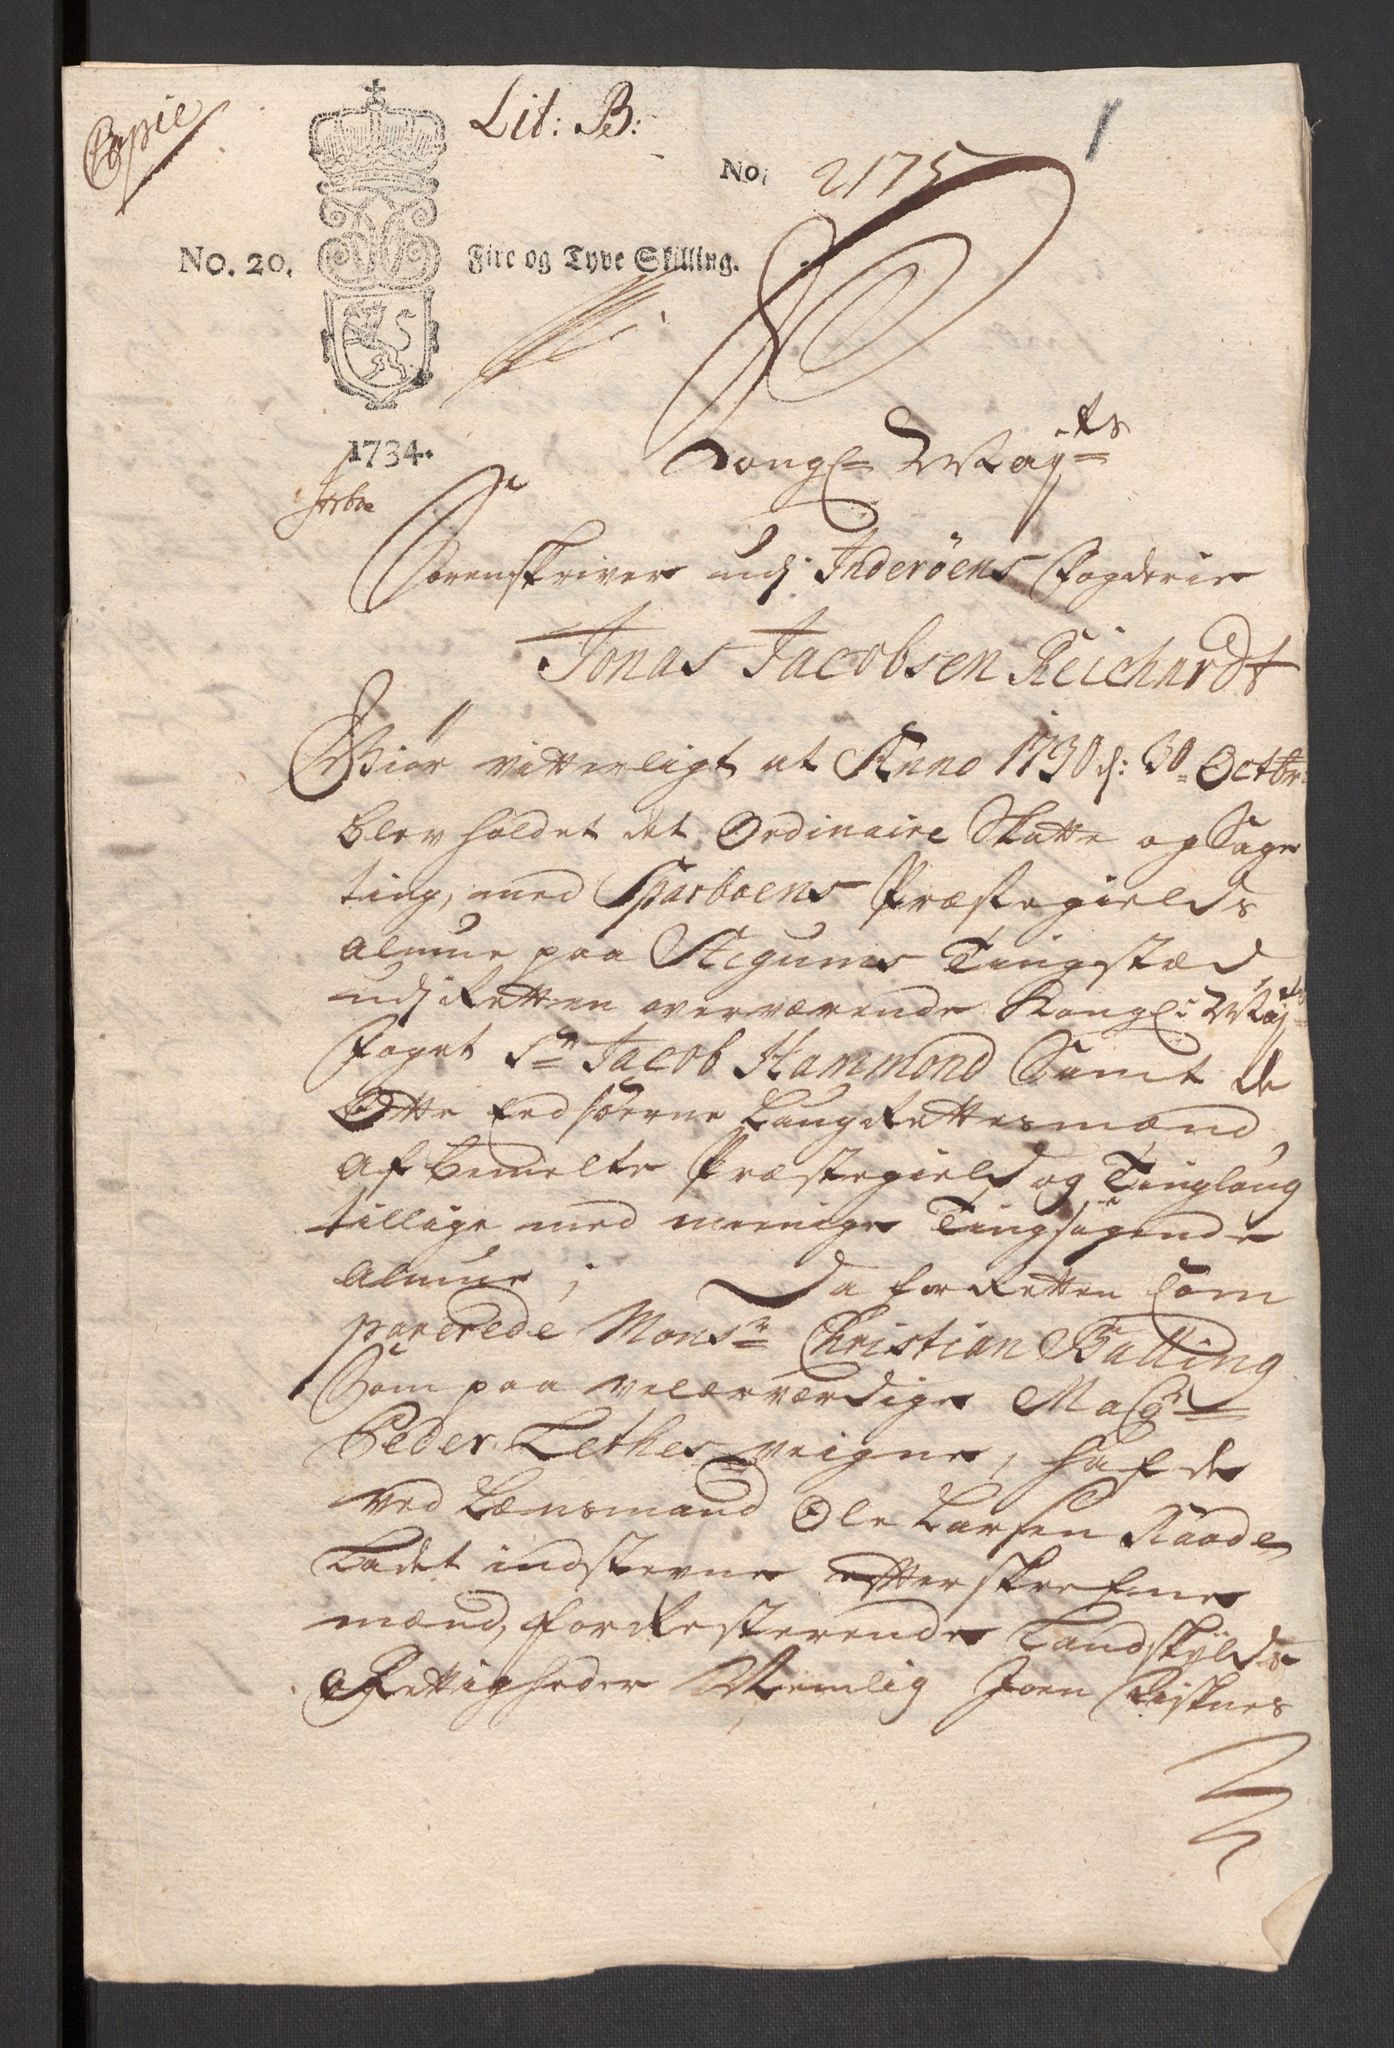 Copie
Lit: B:
1
No: 2175
No. 20.
Fire og Tyve Skilling.
1734.
Kongl Mayts
Sorenskriver udj Inderöens Fogderie
Jonas Jacobsen Reichardt
Giör vitterligt at Anno 1730 d: 30 Octbr
blev holdet det Ordinaire Skatte og Sage
ting, med Sparboens Præstegields
almue paa Stegums Tingstæd
udj Retten overværende Kongl: Mayts
Foget Sr Jacob Hammond Samt de
Otte Eedsoerne LaugRettesmænd
af bemelte Præstegield og Tinglaug
tillige med meenige Tingsøgende
almue; Da for Retten Com
parerede Monsr Christian Balling
Som paa velærværdige Magr
Peder Lethes veigne, hafde
ved Lænsmand Ole Larsen Naade
Ladet indstevne efterskrefne
mænd, for Resterende Landskylds
Rettigheder Nemlig Joen Tisknes